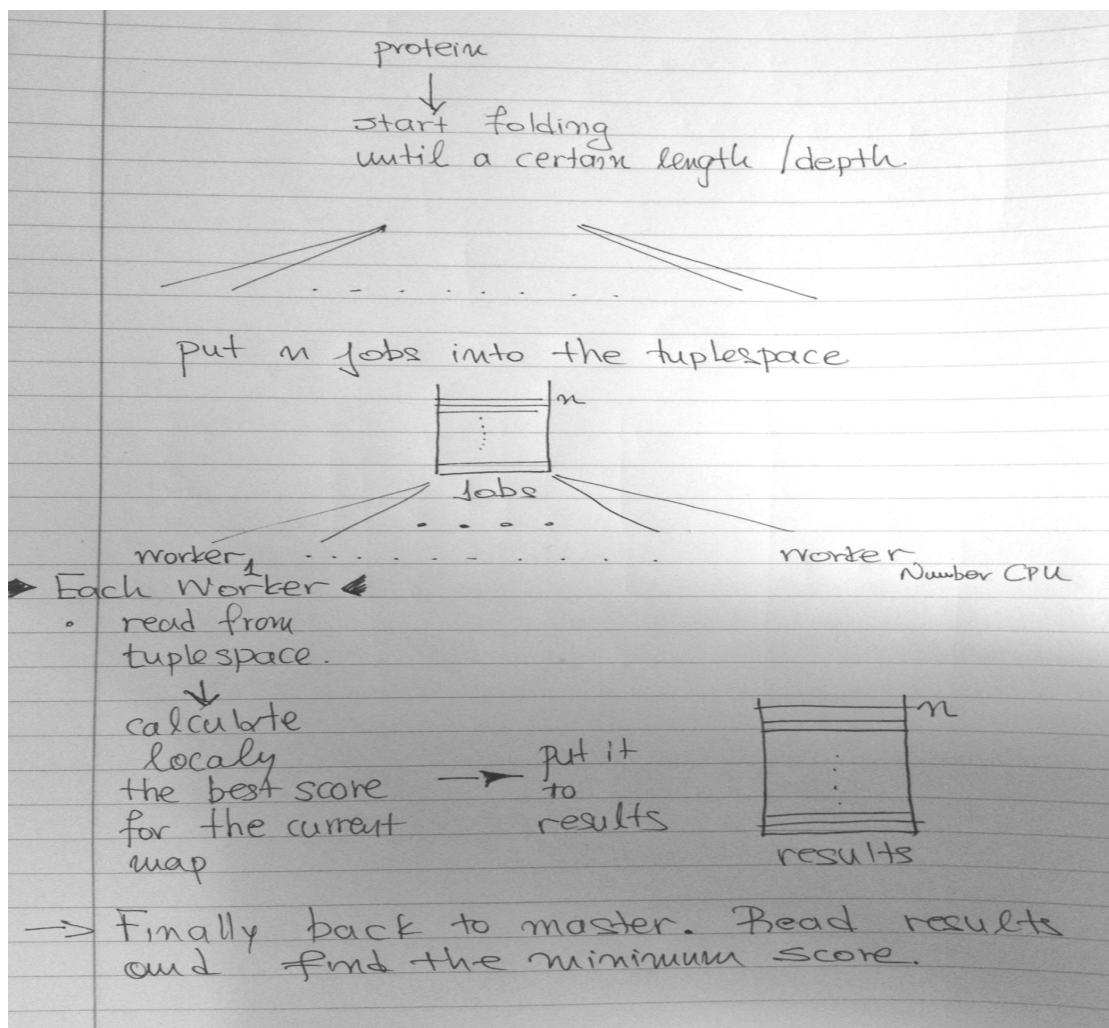 protein
start folding
until a certain length /depth.
put n jobs into the tuplespace
n
Jobs
worker 1 worker Number CPU
Each Worker
• read from
tuplespace.
calculate
localy
the best score
for the current
map
put it
to
results
n
results
Finally back to master. Read results
and find the minimum score.